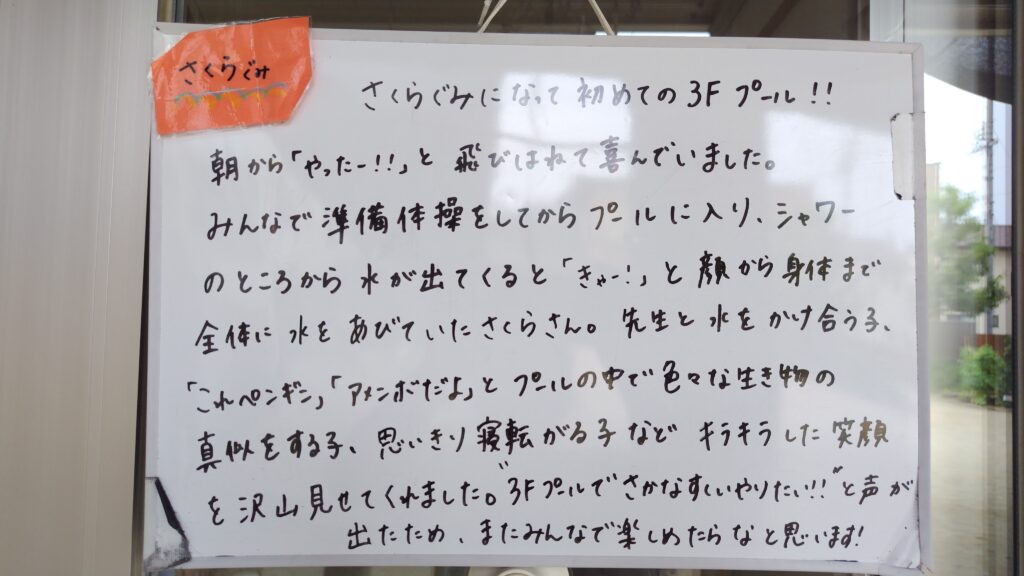 さくらぐみ
さくらぐみになって 初めての 3F プール!!
朝から「やったー!!」と 飛びはねて喜んでいました。
みんなで準備体操をしてからプールに入り、シャワー
のところから 水が出てくると「きゃー!」と 顔から身体まで
全体に水をあびていたさくらさん。先生と水をかけ合う子、
「これペンギン」「アメンボだよ」と プールの中で色々な生き物の
真似をする子、思いきり寝転がる子など キラキラした笑顔
を沢山見せてくれました。"3Fプールでさかなすくいやりたい!!"と声が
出たため、またみんなで楽しめたらなと思います!